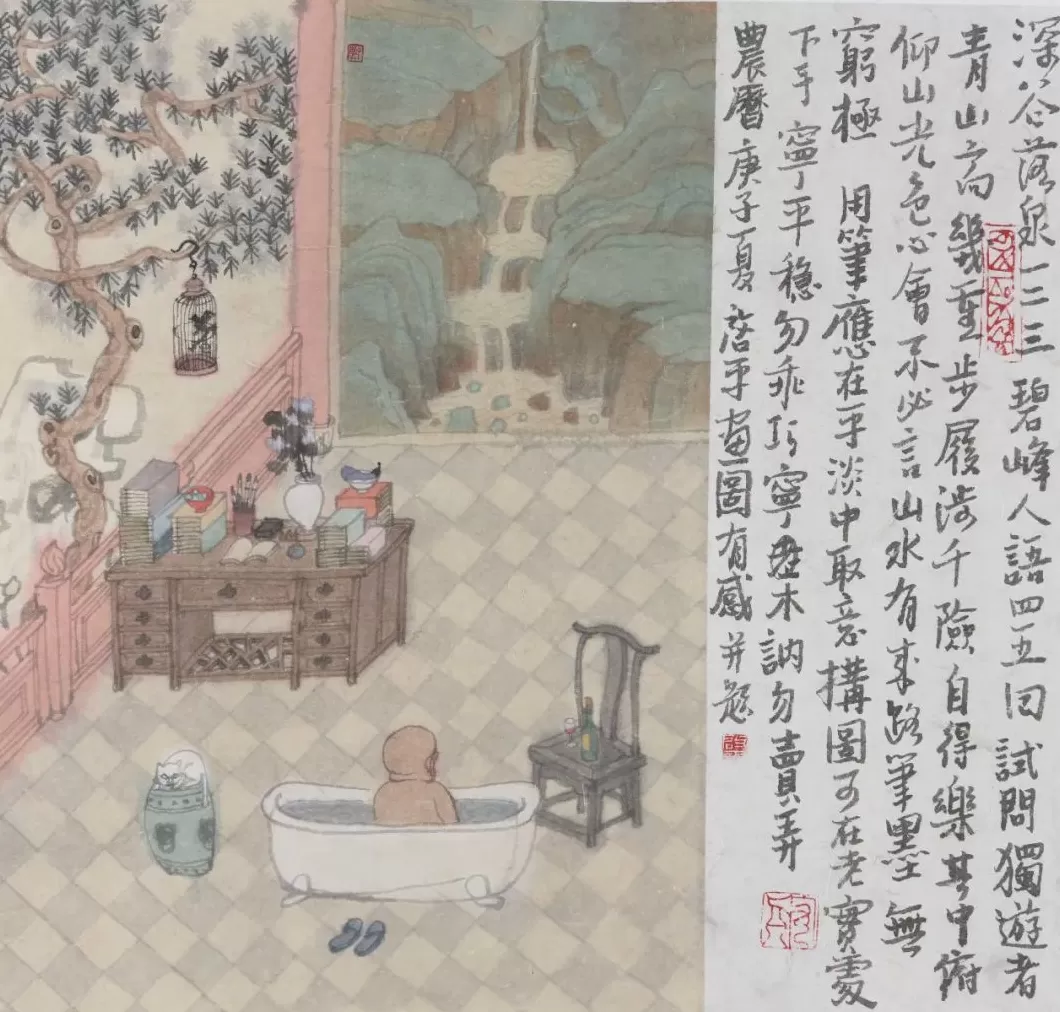 深谷落泉一二三 碧峰人語四五曰 試問獨遊者
青山高幾重步履涉千險自得樂其中俯
仰山光色心會不必言山水有来路筆墨無
窮極 用筆應在平淡中取意構圖可在老實處
下手 寧平穩勿乖巧寧木訥勿賣弄
農曆庚子夏 平畫圖有感并題